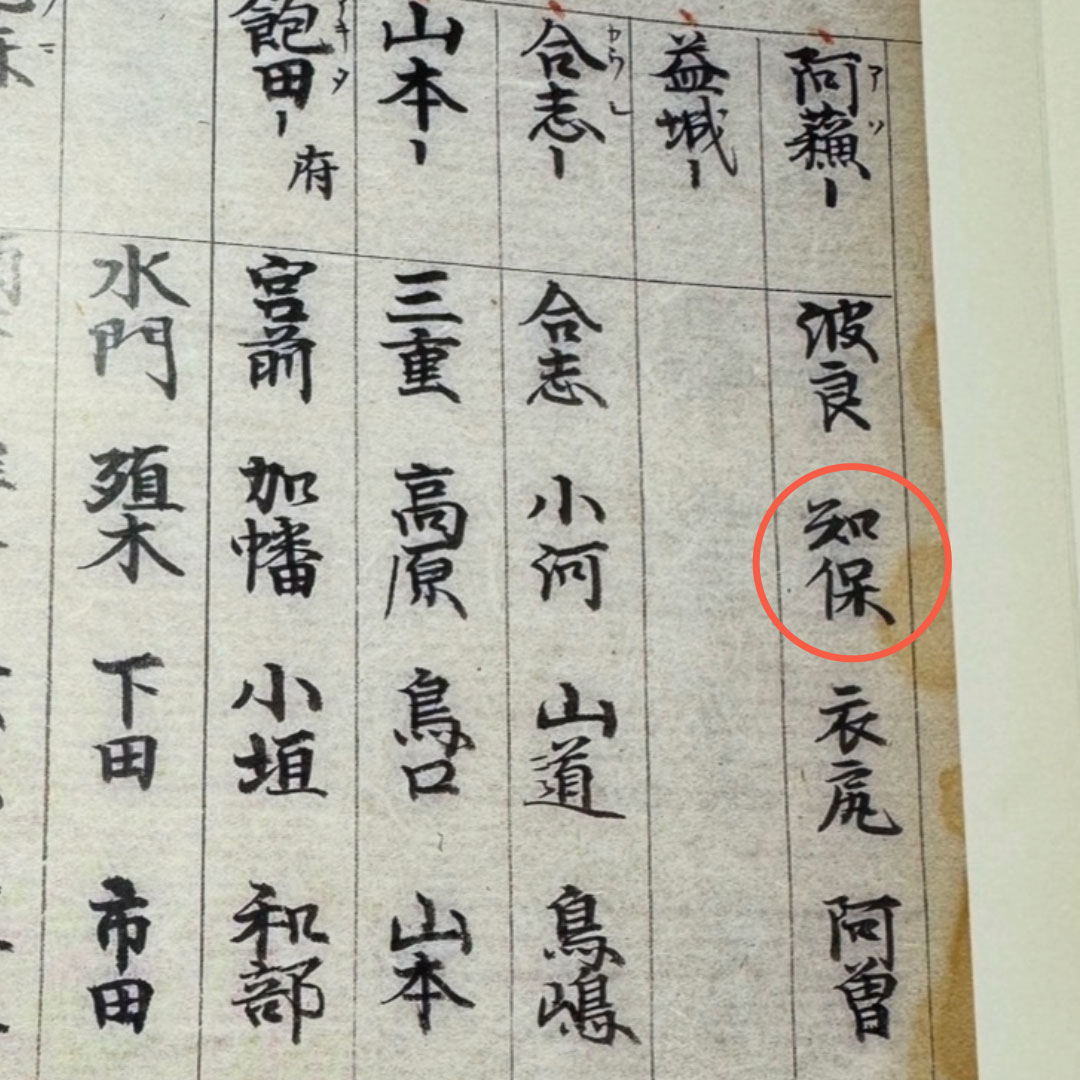 阿蘓ー アソ
波良
知保
衣尻
阿曽
益城ー
合志ー
合志
小河
山道
鳥嶋
山本ー
三重
高原
鳥口
山本
飽田ー 府 アキタ
宮前
加幡
小垣
和部
水門
殖木
下田
市田